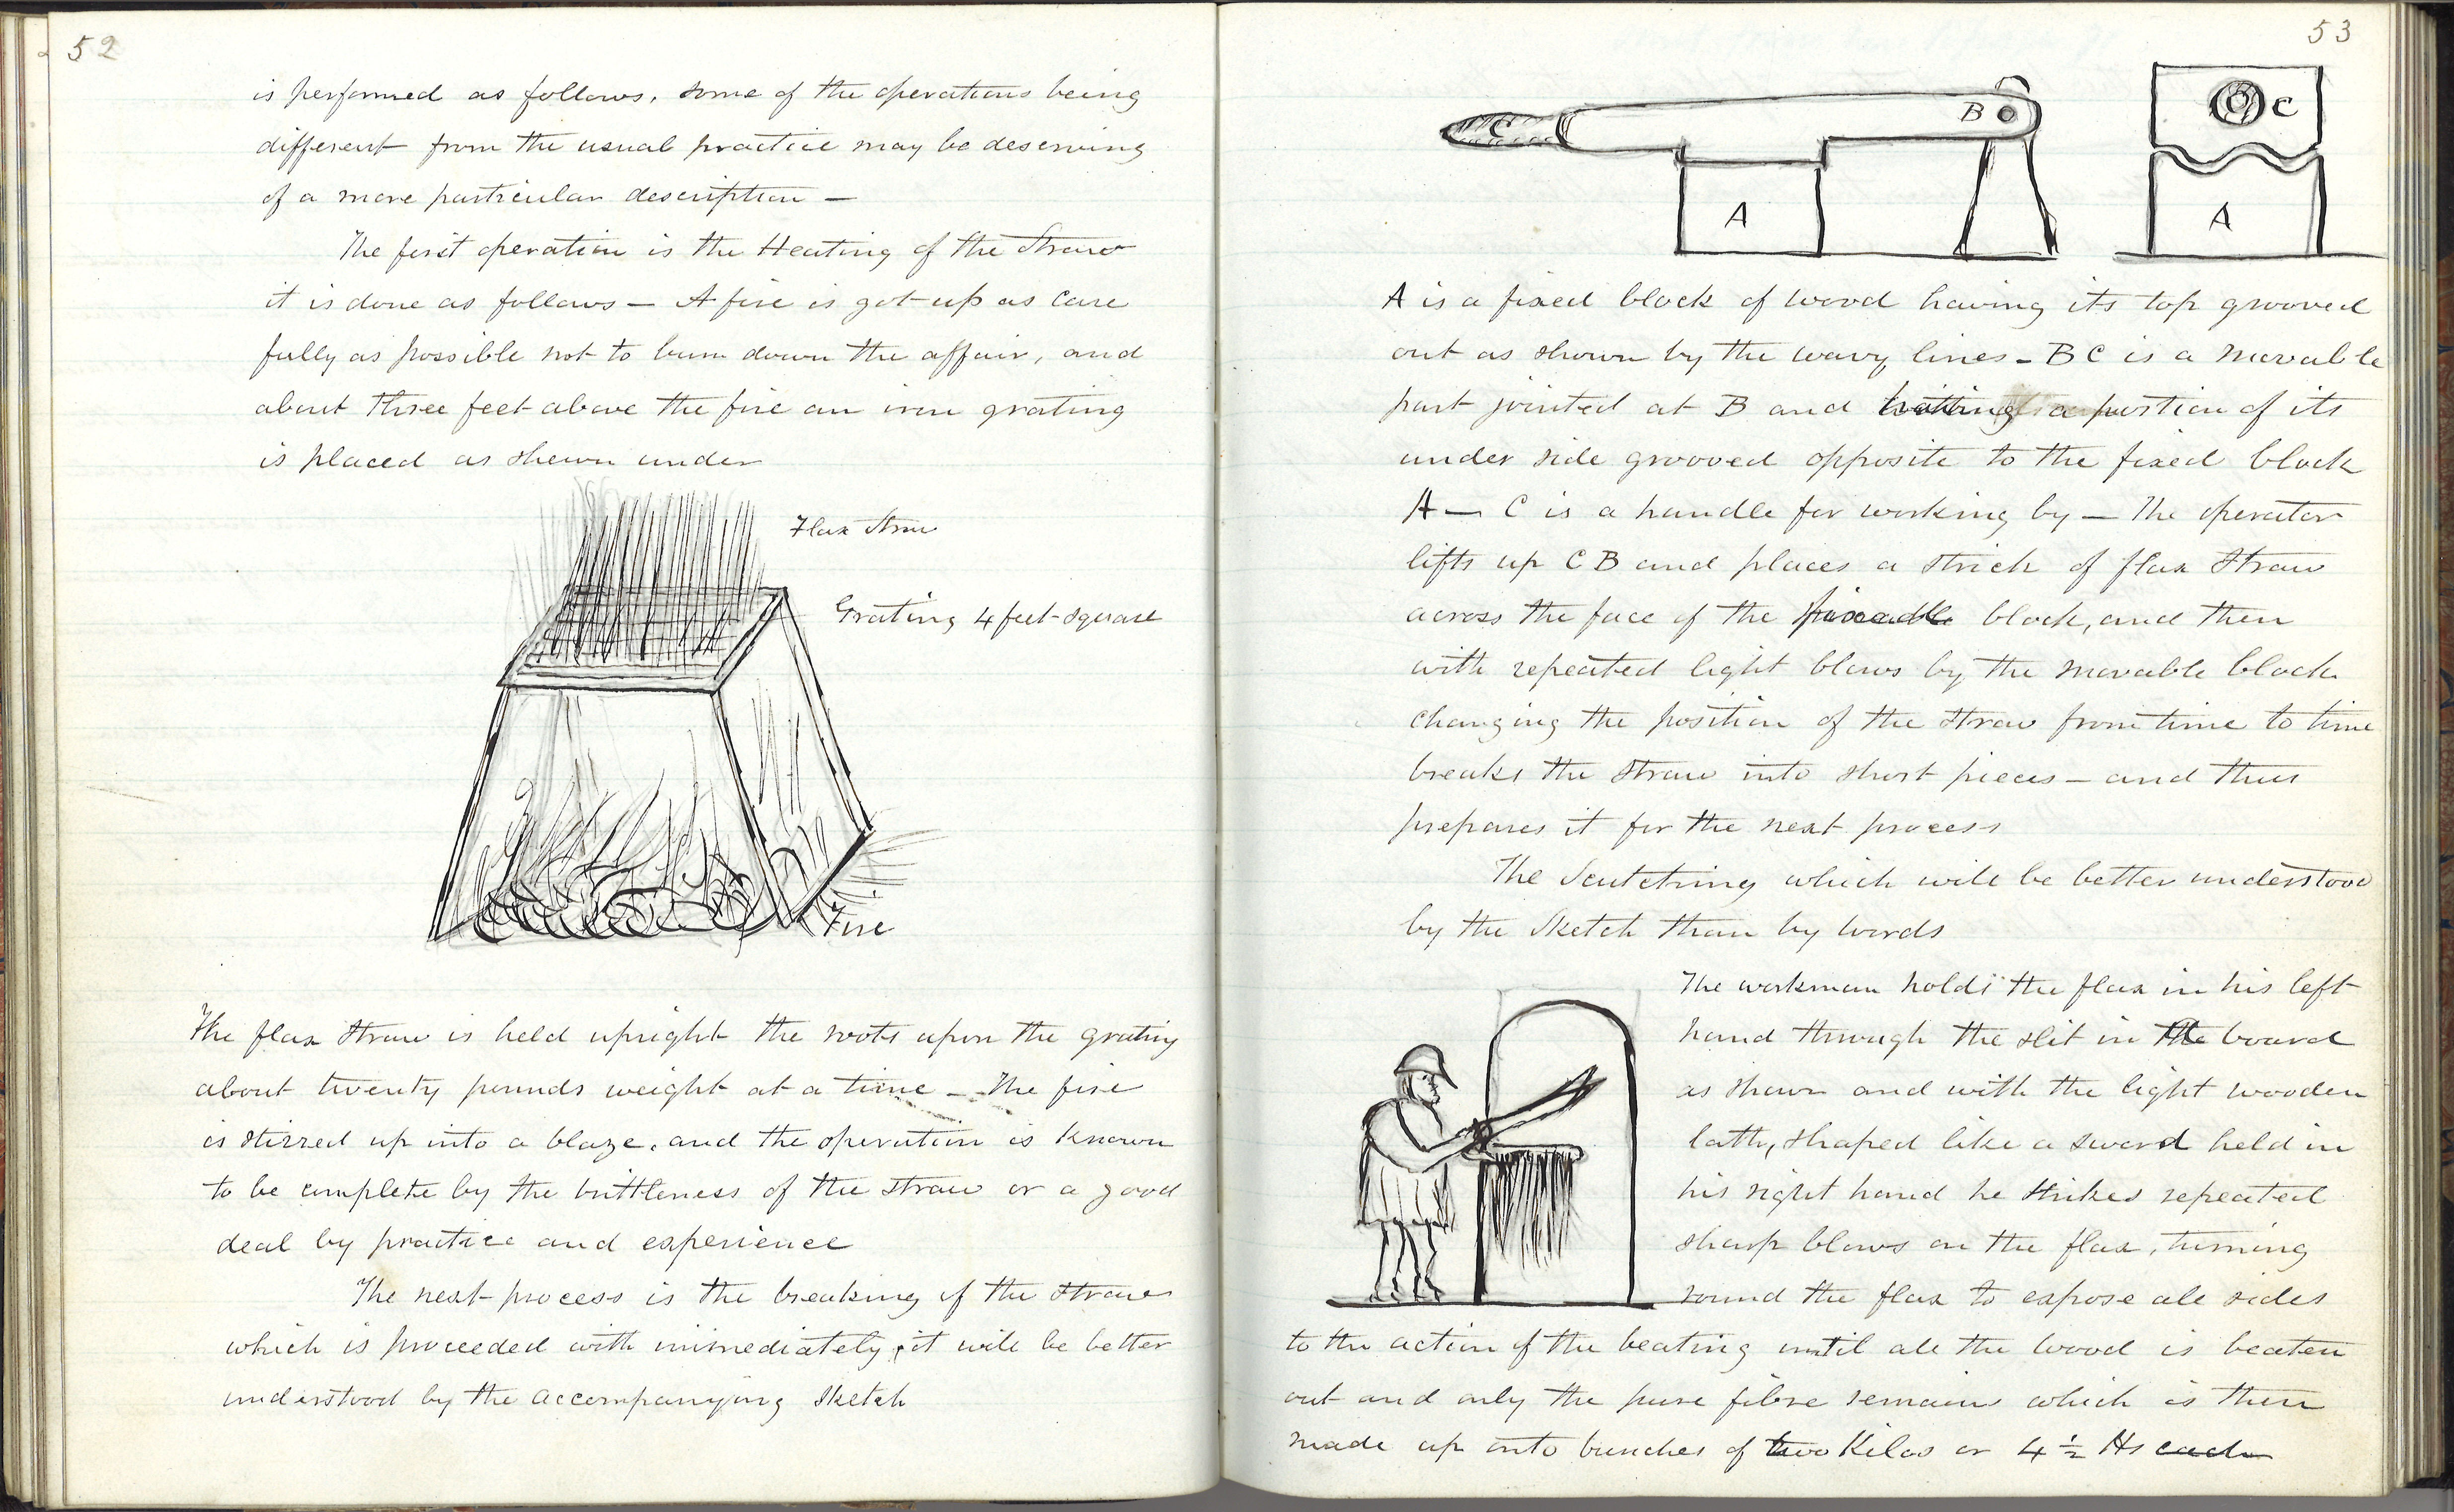 52
is performed as follows, some of the operations being
different from the usual practice may be deserving
of a more particular description —
The first operation is the Heating of the Straw
it is done as follows — A fire is got up as care
fully as possible not to burn down the affair, and
about three feet above the fire an iron grating
is placed as shewn under
Flax Straw
Grating 4 feet square
Fire
The flax straw is held upright the roots upon the grating
about twenty pounds weight at a time — The fire
is stirred up into a blaze, and the operation is known
to be complete by the brittleness of the straw or a good
deal by practice and experience
The next process is the breaking of the straw
which is proceeded with immediately, it will be better
understood by the accompanying sketch
53
C B C
A A
A is a fixed block of wood having its top grooved
out as shown by the wavy lines - BC is a movable
part jointed at B and having a portion of its
under side grooved opposite to the fixed block
A — C is a handle for working by — The operator
lifts up C B and places a strick of flax straw
across the face of the block, and then
with repeated light blows by the movable block
changing the position of the straw from time to time
breaks the straw into short pieces — and thus
prepares it for the next process
The Scutching which will be better understood
by the sketch than by words
The workman holds the flax in his left
hand through the slit in the board
as shewn and with the light wooden
lath, shaped like a sword held in
his right hand he strikes repeated
sharp blows on the flax, turning
round the flax to expose all sides
to the action of the beating until all the wood is beaten
out and only the pure fibre remains which is then
made up into bunches of two Kilos or 4 ½ lbs each